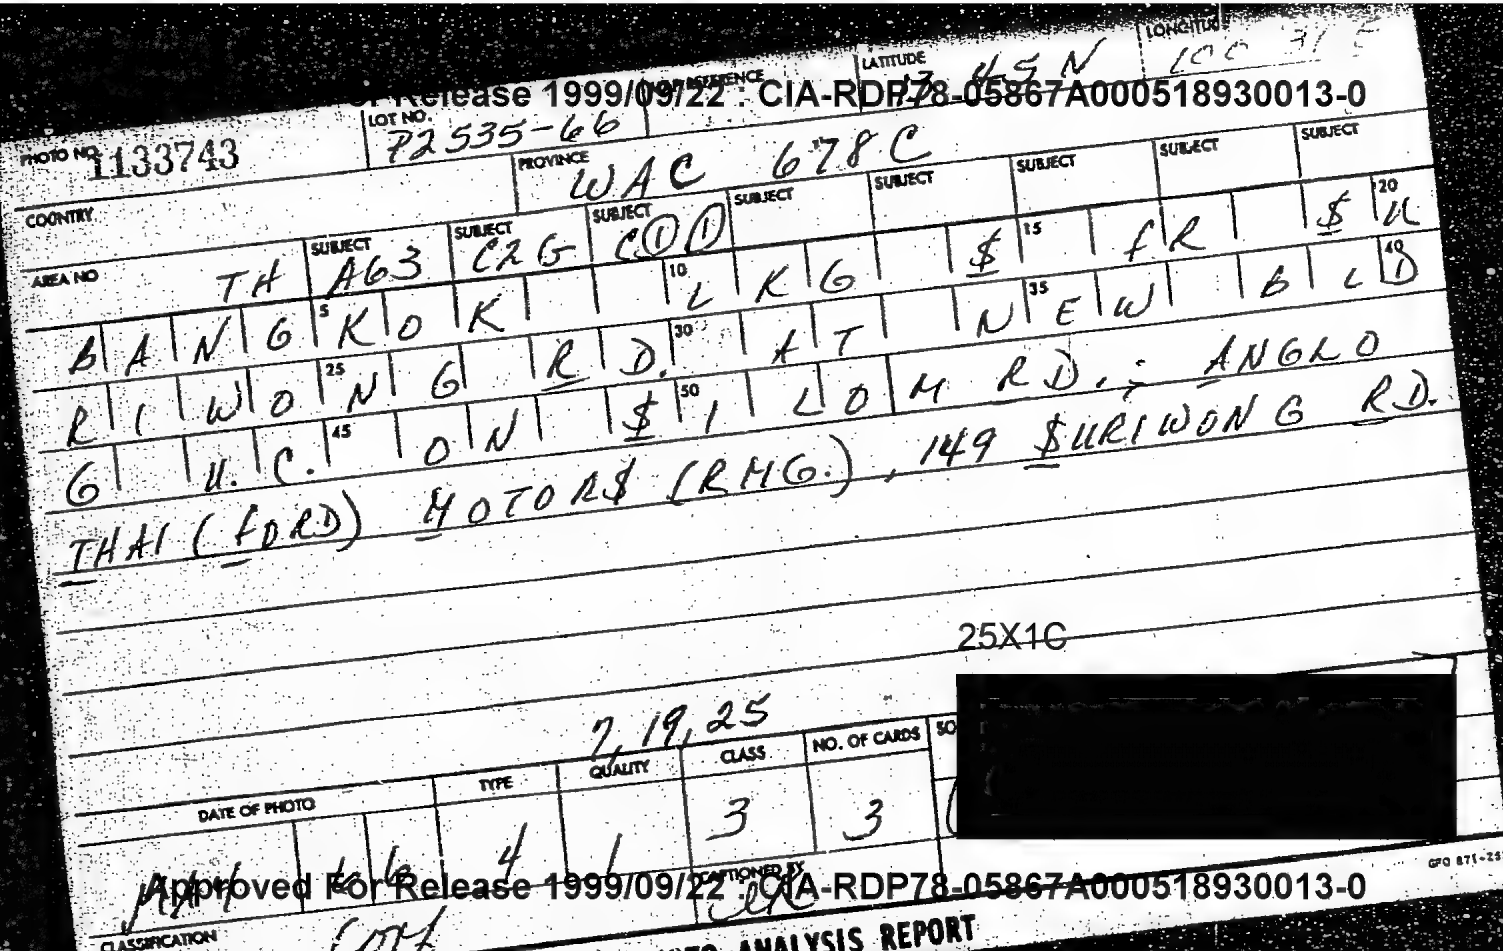 LATITUDE LONGITUDE
13 45 N 100 31 E
or Release 1999/09/22 : CIA-RDP78-05867A000518930013-0
PHOTO NO. 1133743 LOT NO. P2535-66 REFERENCE
COUNTRY PROVINCE WAC 678C
AREA NO TH SUBJECT A63 SUBJECT C2G SUBJECT C11 SUBJECT SUBJECT SUBJECT SUBJECT SUBJECT
BANG 5 KOK 10 LKG $ 15 fR $ 20 U
RIWO 25 NG RD. 30 AT NEW 35 BL 40 D
G U.C. 45 ON $ 50 I LOM RD. ; ANGLO
THAI (fORD) MOTOR$ (RHG.), 149 $URIWONG RD.
25X1C
7, 19, 25
DATE OF PHOTO TYPE QUALITY CLASS NO. OF CARDS SO
MAY 66 4 1 3 3
GPO 871-25
Approved For Release 1999/09/22 : CIA-RDP78-05867A000518930013-0
CAPTIONED BY
CLASSIFICATION
ANALYSIS REPORT